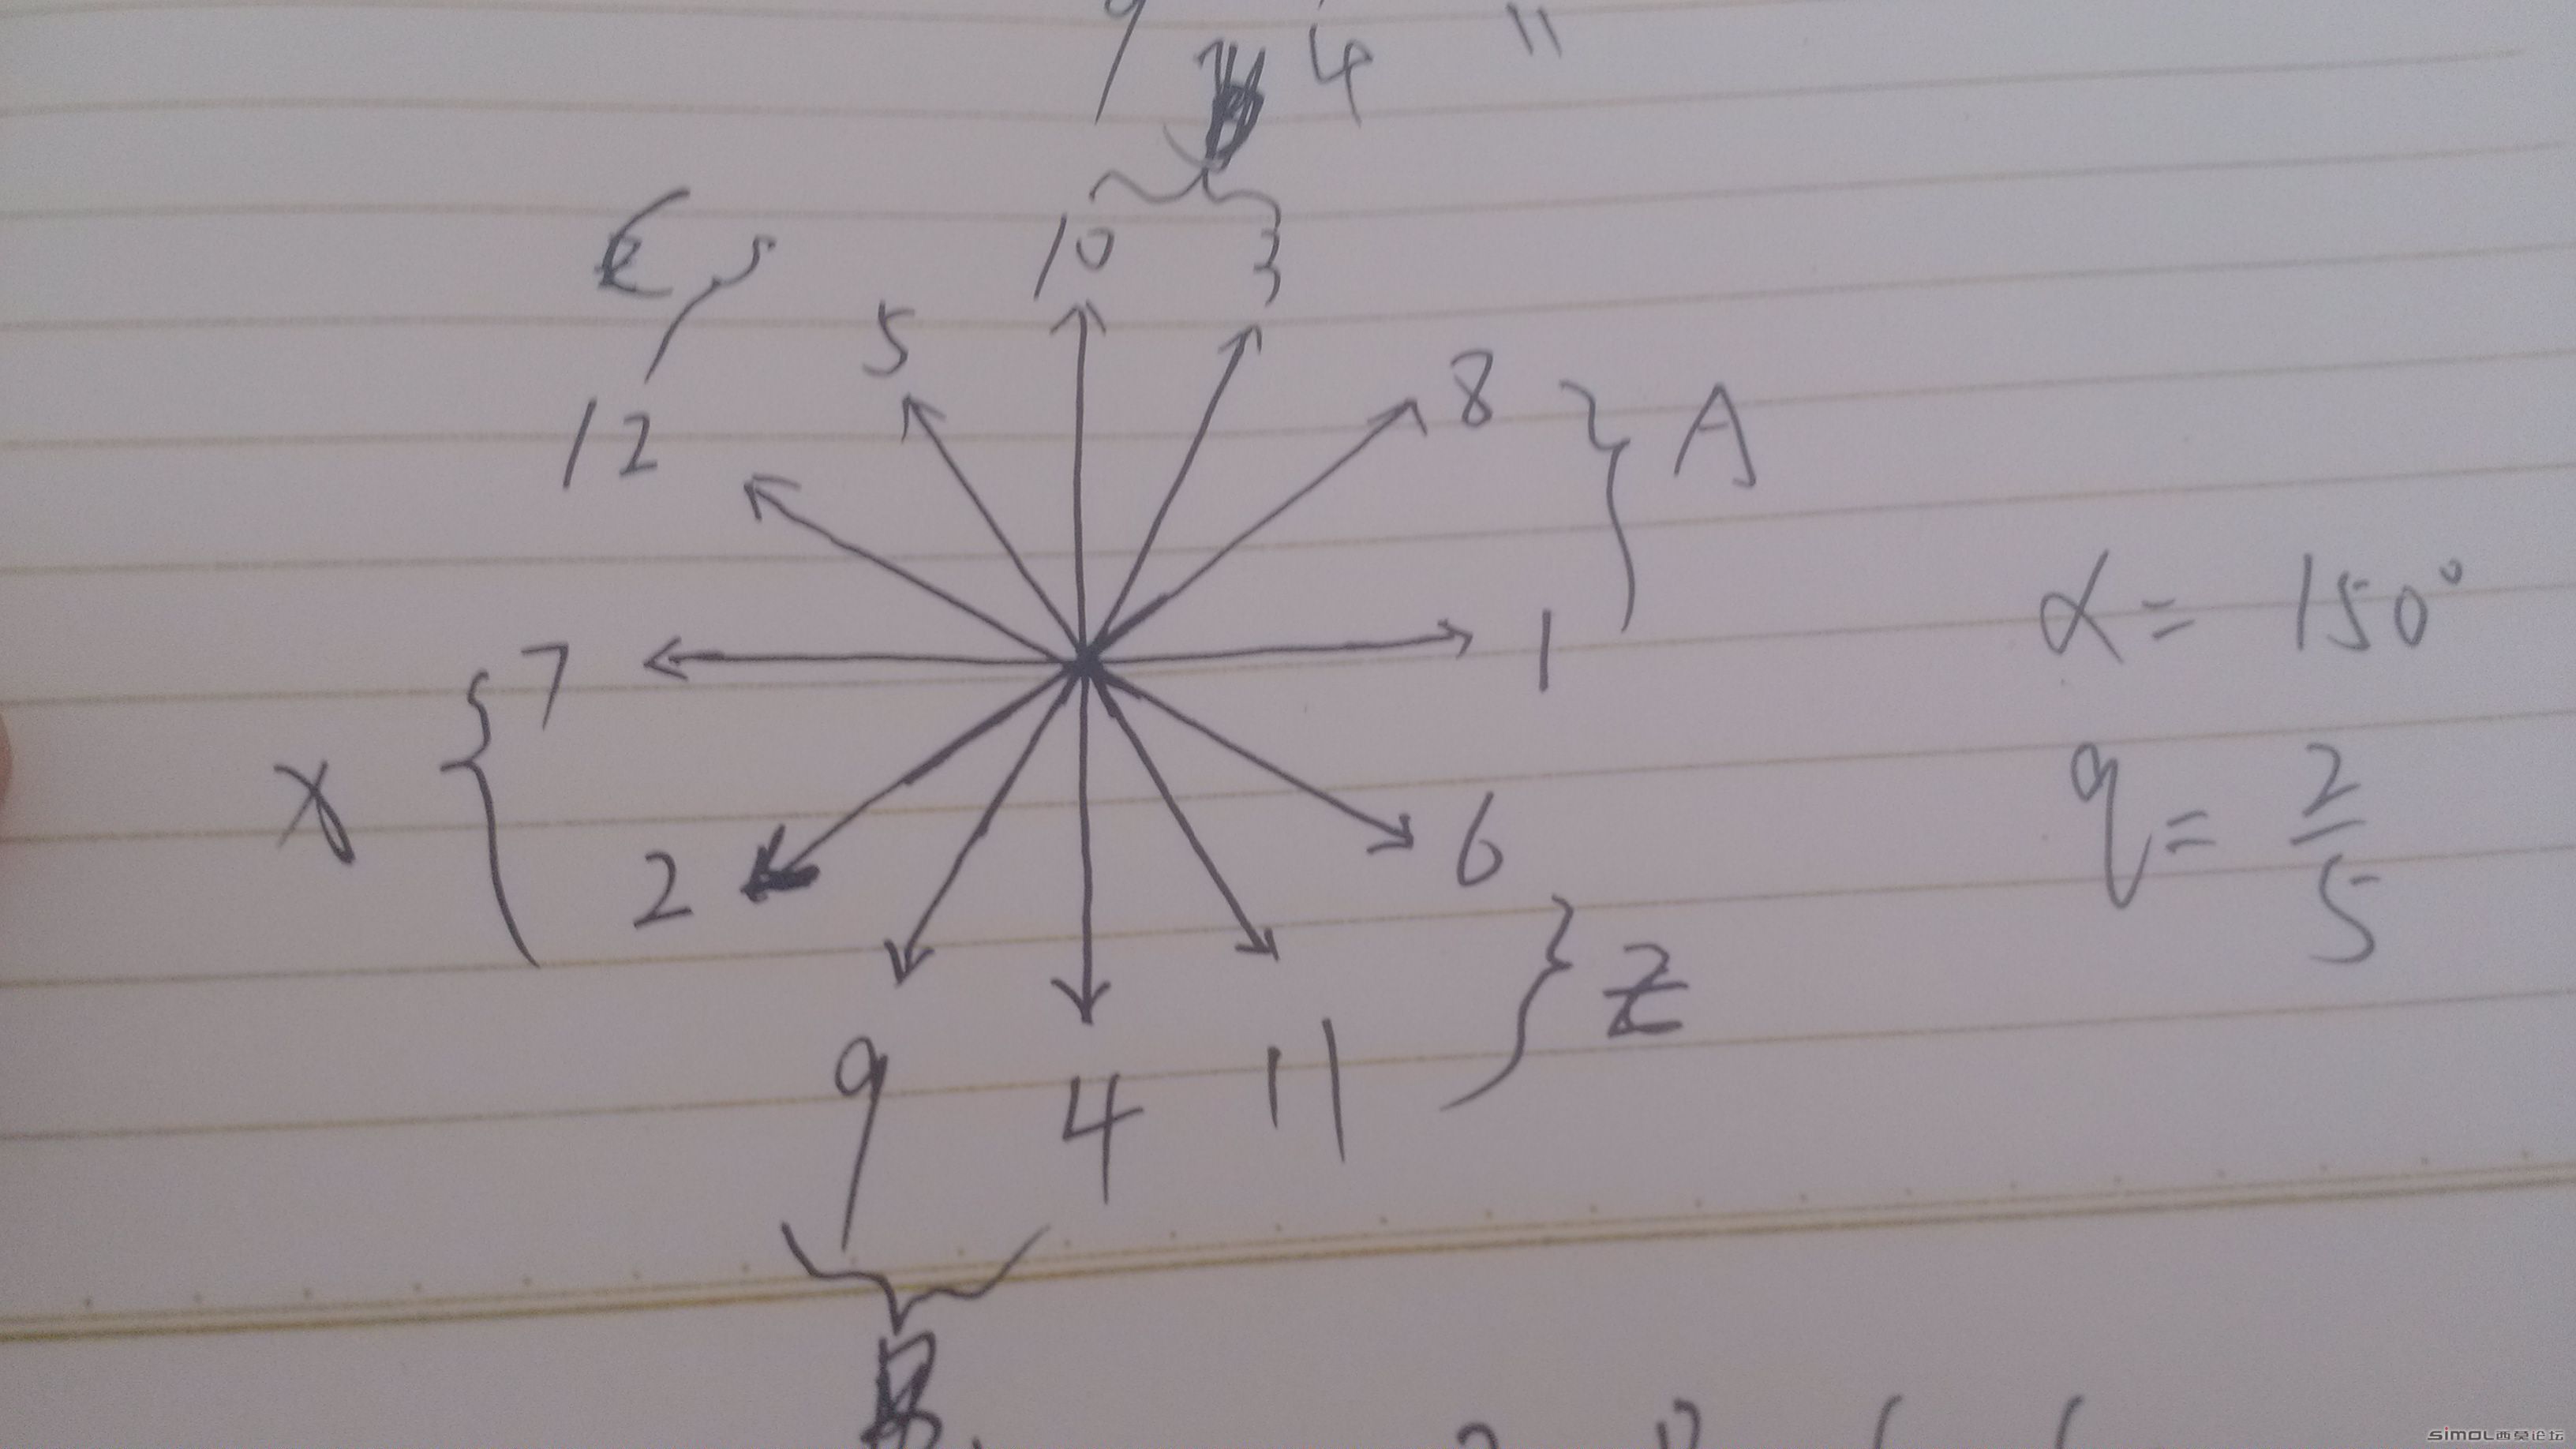 4 11
10 3
5 8 A
12
α = 150°
7 1
X
q = 2/5
2 6
Z
9 4 11
B
simol西莫论坛